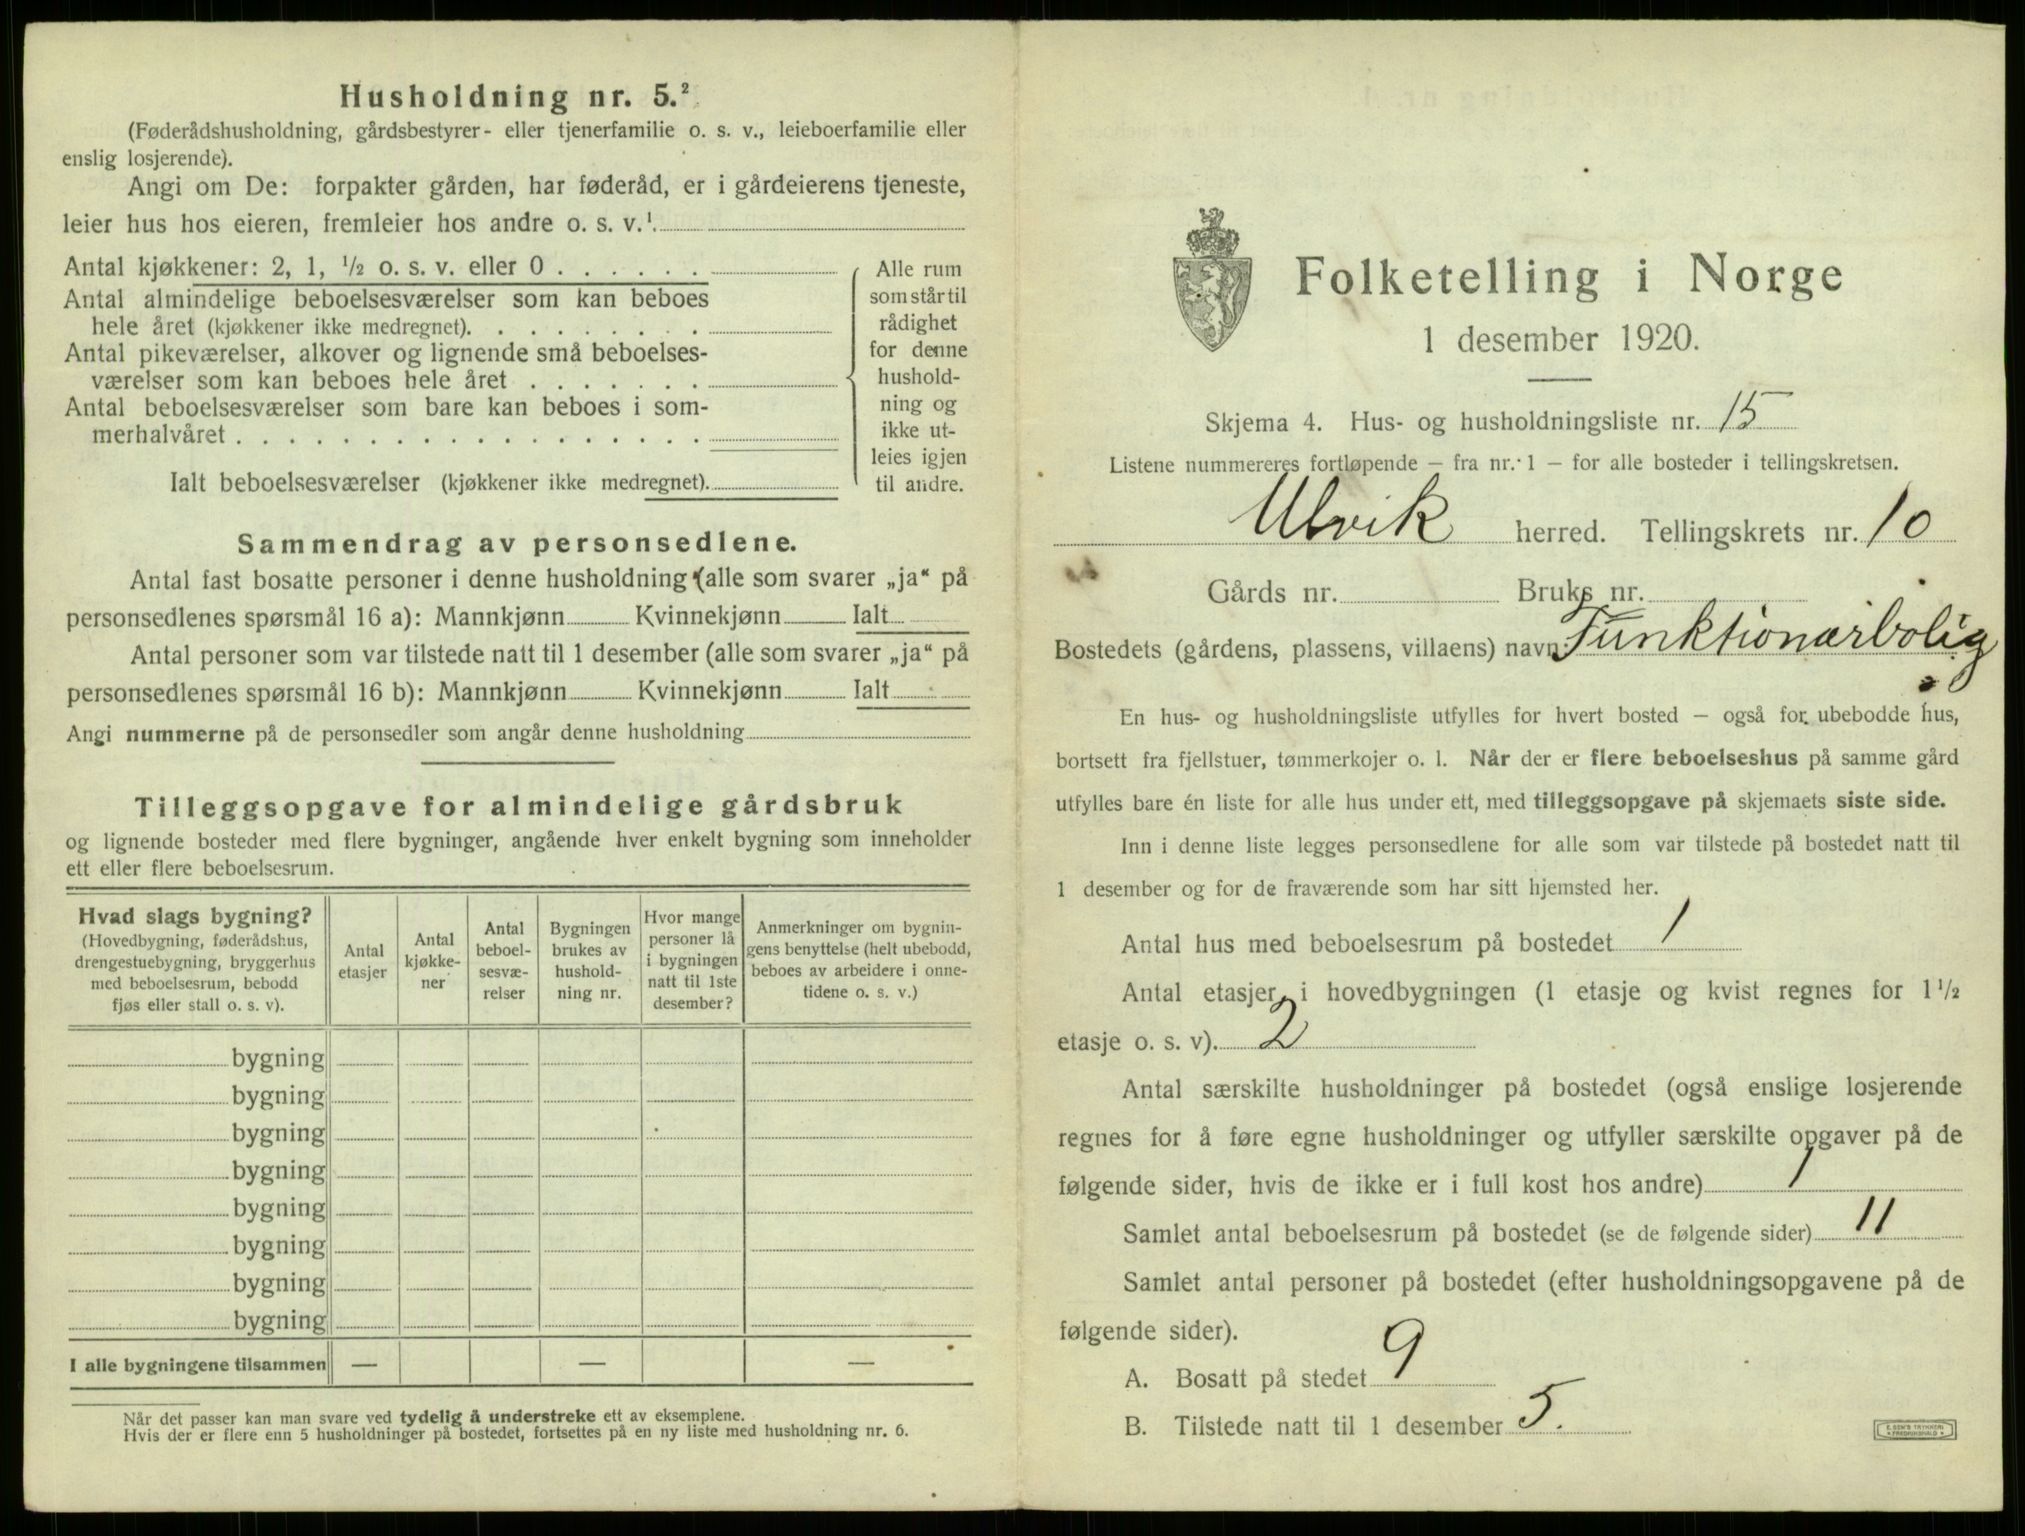 Husholdning nr. 5.²
(Føderådshusholdning, gårdsbestyrer- eller tjenerfamilie o. s. v., leieboerfamilie eller
enslig losjerende).
Angi om De: forpakter gården, har føderåd, er i gårdeierens tjeneste,
leier hus hos eieren, fremleier hos andre o. s. v.¹
Antal kjøkkener: 2, 1, ½ o. s. v. eller 0 . . . . . .
Antal almindelige beboelsesværelser som kan beboes
hele året (kjøkkener ikke medregnet). . . . . . . . .
Antal pikeværelser, alkover og lignende små beboelses-
værelser som kan beboes hele året . . . . . . .
Antal beboelsesværelser som bare kan beboes i som-
merhalvåret . . . . . . . . . . . . . . . . . .
Ialt beboelsesværelser (kjøkkener ikke medregnet).
Alle rum
som står til
rådighet
for denne
hushold-
ning og
ikke ut-
leies igjen
til andre.
Sammendrag av personsedlene.
Antal fast bosatte personer i denne husholdning (alle som svarer „ja“ på
personsedlenes spørsmål 16 a): Mannkjønn Kvinnekjønn Ialt
Antal personer som var tilstede natt til 1 desember (alle som svarer „ja“ på
personsedlenes spørsmål 16 b): Mannkjønn Kvinnekjønn Ialt
Angi nummerne på de personsedler som angår denne husholdning
Tilleggsopgave for almindelige gårdsbruk
og lignende bosteder med flere bygninger, angående hver enkelt bygning som inneholder
ett eller flere beboelsesrum.
Hvad slags bygning?
(Hovedbygning, føderådshus,
drengestuebygning, bryggerhus
med beboelsesrum, bebodd
fjøs eller stall o. s. v).
Antal
etasjer
Antal
kjøkke-
ner
Antal
beboel-
sesvæ-
relser
Bygningen
brukes av
hushold-
ning nr.
Hvor mange
personer lå
i bygningen
natt til 1ste
desember?
Anmerkninger om bygnin-
gens benyttelse (helt ubebodd,
beboes av arbeidere i onne-
tidene o. s. v.)
bygning
bygning
bygning
bygning
bygning
bygning
bygning
bygning
I alle bygningene tilsammen — — —
Når det passer kan man svare ved tydelig å understreke ett av eksemplene.
Hvis der er flere enn 5 husholdninger på bostedet, fortsettes på en ny liste med husholdning nr. 6.
Folketelling i Norge
1 desember 1920.
Skjema 4. Hus- og husholdningsliste nr. 15
Listene nummereres fortløpende — fra nr. 1 — for alle bosteder i tellingskretsen.
Ulvik herred. Tellingskrets nr. 10
Gårds nr. Bruks nr.
Bostedets (gårdens, plassens, villaens) navn: Funktionærbolig
En hus- og husholdningsliste utfylles for hvert bosted — også for ubebodde hus,
bortsett fra fjellstuer, tømmerkojer o. l. Når der er flere beboelseshus på samme gård
utfylles bare én liste for alle hus under ett, med tilleggsopgave på skjemaets siste side.
Inn i denne liste legges personsedlene for alle som var tilstede på bostedet natt til
1 desember og for de fraværende som har sitt hjemsted her.
Antal hus med beboelsesrum på bostedet 1
Antal etasjer i hovedbygningen (1 etasje og kvist regnes for 1½
etasje o. s. v). 2
Antal særskilte husholdninger på bostedet (også enslige losjerende
regnes for å føre egne husholdninger og utfyller særskilte opgaver på de
følgende sider, hvis de ikke er i full kost hos andre) 1
Samlet antal beboelsesrum på bostedet (se de følgende sider) 11
Samlet antal personer på bostedet (efter husholdningsopgavene på de
følgende sider).
A. Bosatt på stedet 9
B. Tilstede natt til 1 desember 5.